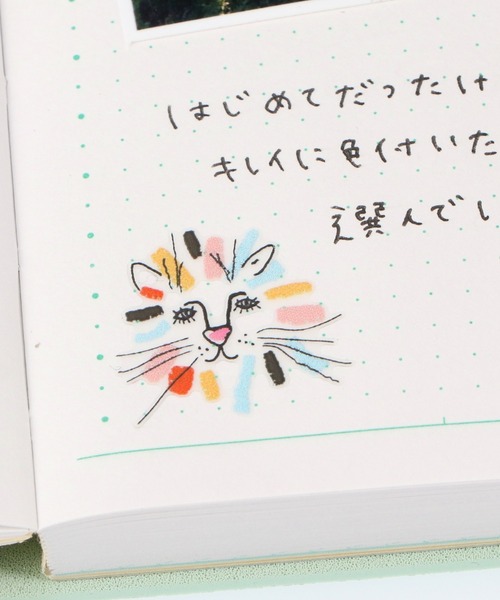 はじめてだったけ
キレイに色付いた
選んでし